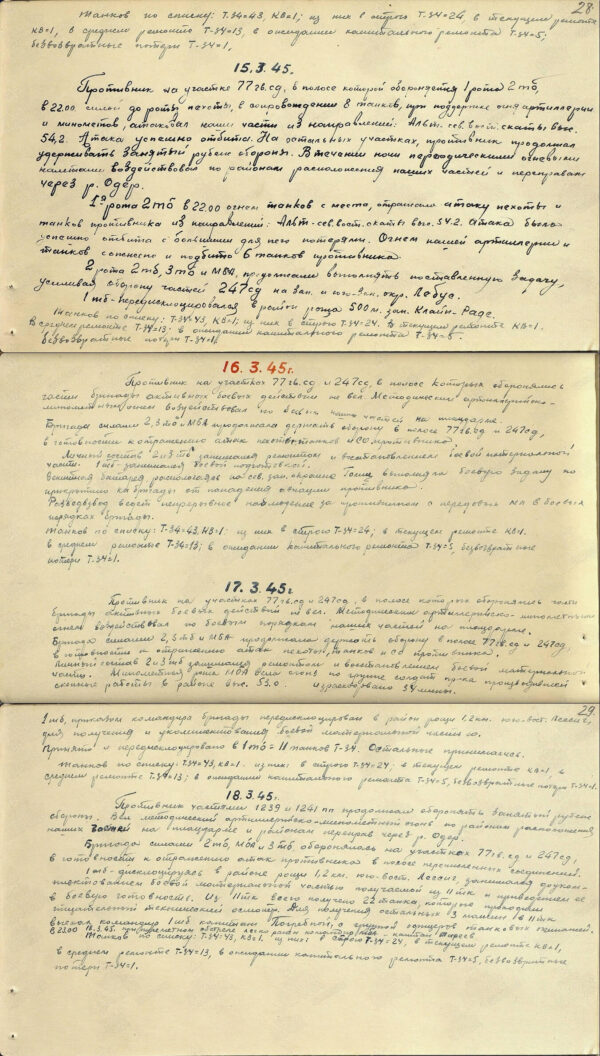 28
Танков по списку: Т-34=43, КВ=1; из них в строю Т-34=24, в текущем ремонте
КВ=1, в среднем ремонте Т-34=13, в ожидании капитального ремонта Т-34=5;
безвозвратные потери Т-34=1,
15.3.45.
Противник на участке 77 гв.сд, в полосе которой обороняется 1 рота 2 тб,
в 22.00 силой до роты пехоты, в сопровождении 8 танков, при поддержке огня артиллерии
и минометов, атаковал наши части из направлений: Альт. сев. вост. скаты выс.
54,2. Атака успешно отбита. На остальных участках, противник продолжал
удерживать занятый рубеж обороны. В течении ночи периодическими огневыми
налетами воздействовал по районам расположения наших частей и переправам
через р. Одер.
1я рота 2 тб в 22.00 огнем танков с места, отразили атаку пехоты и
танков противника из направлений: Альт-сев.вост. скаты выс. 54.2. атака была
успешно отбита с большими для него потерями. Огнем нашей артиллерии и
танков сожжено и подбито 6 танков противника
2 рота 2 тб, 3 тб и МБА, продолжали выполнять поставленную задачу,
усиливая оборону частей 247 сд на зап. и юго-зап. окр. Лебус.
1 тб-передислоцировался в район роща 500 м. зап. Клайн-Раде.
Танков по списку: Т-34=43, КВ=1; из них в строю Т-34=24. В текущем ремонте КВ=1.
В среднем ремонте Т-34=13; в ожидании капитального ремонта Т-34=5.
Безвозвратные потери Т-34=1
16.3.45г.
Противник на участках 77 гв.сд и 247 сд, в полосе которых оборонялись
части бригады активных боевых действий не вел. Методическим артиллерийско-
минометным огнем воздействовал по боевым частей на плацдарме.
Бригада силами 2, 3 тб и МБА продолжала держать оборону в полосе 77 гв.сд и 247 сд,
в готовности к отражению атак пехоты, танков и СО противника.
Личный состав 2 и 3 тб занимался ремонтом и восстановлением боевой материальной
части. 1 тб-занимался боевой подготовкой.
Зенитная батарея расположена сев. зап. окраине выполняла боевую задачу по
прикрытию бригады от нападения авиации противника.
Разведвзвод ведет непрерывное наблюдение за противником с передовых НП в боевых
порядках бригады.
Танков по списку: Т-34=43, КВ=1: из них в строю Т-34=24; в текущем ремонте КВ=1.
в среднем ремонте Т-34=13; в ожидании капитального ремонта Т-34=5, безвозвратные
потери Т-34=1.
17.3.45г
Противник на участках 77 гв.сд и 247 сд, в полосе которых оборонялись части
бригады активных боевых действий не вел. Методическим артиллерийско-минометным
огнем воздействовал по боевым порядкам наших частей на плацдарме.
Бригада силами 2, 3 тб и МБА продолжала держать оборону в полосе 77 гв.сд и 247 сд,
в готовности к отражению атак пехоты, танков и СО противника.
Личный состав 2 и 3 тб занимался ремонтом и восстановлением боевой материальной
части. Минометная рота МБА вела огонь по группе солдат пр-ка производившей
работы в районе выс. 53.0. израсходовано 34 мины.
29.
1 тб, приказом командира бригады передислоцирован в район рощи 1,2 км. юго-вост. Лессиг,
для получения и укомплектования боевой материальной частью.
Принято и передислоцировано в 1 тб = 11 танков Т-34. Остальные принимаются.
Танков по списку: Т-34=43, КВ=1. из них: в строю Т-34=24; в текущем ремонте КВ=1, в
среднем ремонте Т-34=13; в ожидании капитального ремонта Т-34=5, безвозвратные потери Т-34=1.
18.3.45г.
Противник частями 1239 и 1241 пп продолжал оборонять занятый рубеж
обороны. Вел методический артиллерийско-минометный огонь по районам расположения
наших частей на плацдарме и районам переправ через р. Одер.
Бригада силами 2 тб, МБА и 3 тб оборонялась на участках 77 гв.сд и 247 сд,
в готовности к отражению атак противника в полосе перечисленных соединений.
1 тб-дислоцируясь в районе рощи 1,2 км. юго-вост. Лессиг, занимался доуком-
плектованием боевой материальной частью получаемой из 11 тк и приведением её
в боевую готовность. Из 11 тк всего получено 22 танка, которые проходят
тщательный технический осмотр. Для получения остальных 13 машин в 11 тк
выехал командир 1 тб капитан Погребной, с группой офицеров танковых экипажей.
В 23.00 18.3.45г. при обстреле капитан
Танков по списку: Т-34=43, КВ=1. из них: в строю Т-34=24, в текущем ремонте КВ=1,
в среднем ремонте Т-34=13, в ожидании капитального ремонта Т-34=5, безвозвратные
потери Т-34=1.